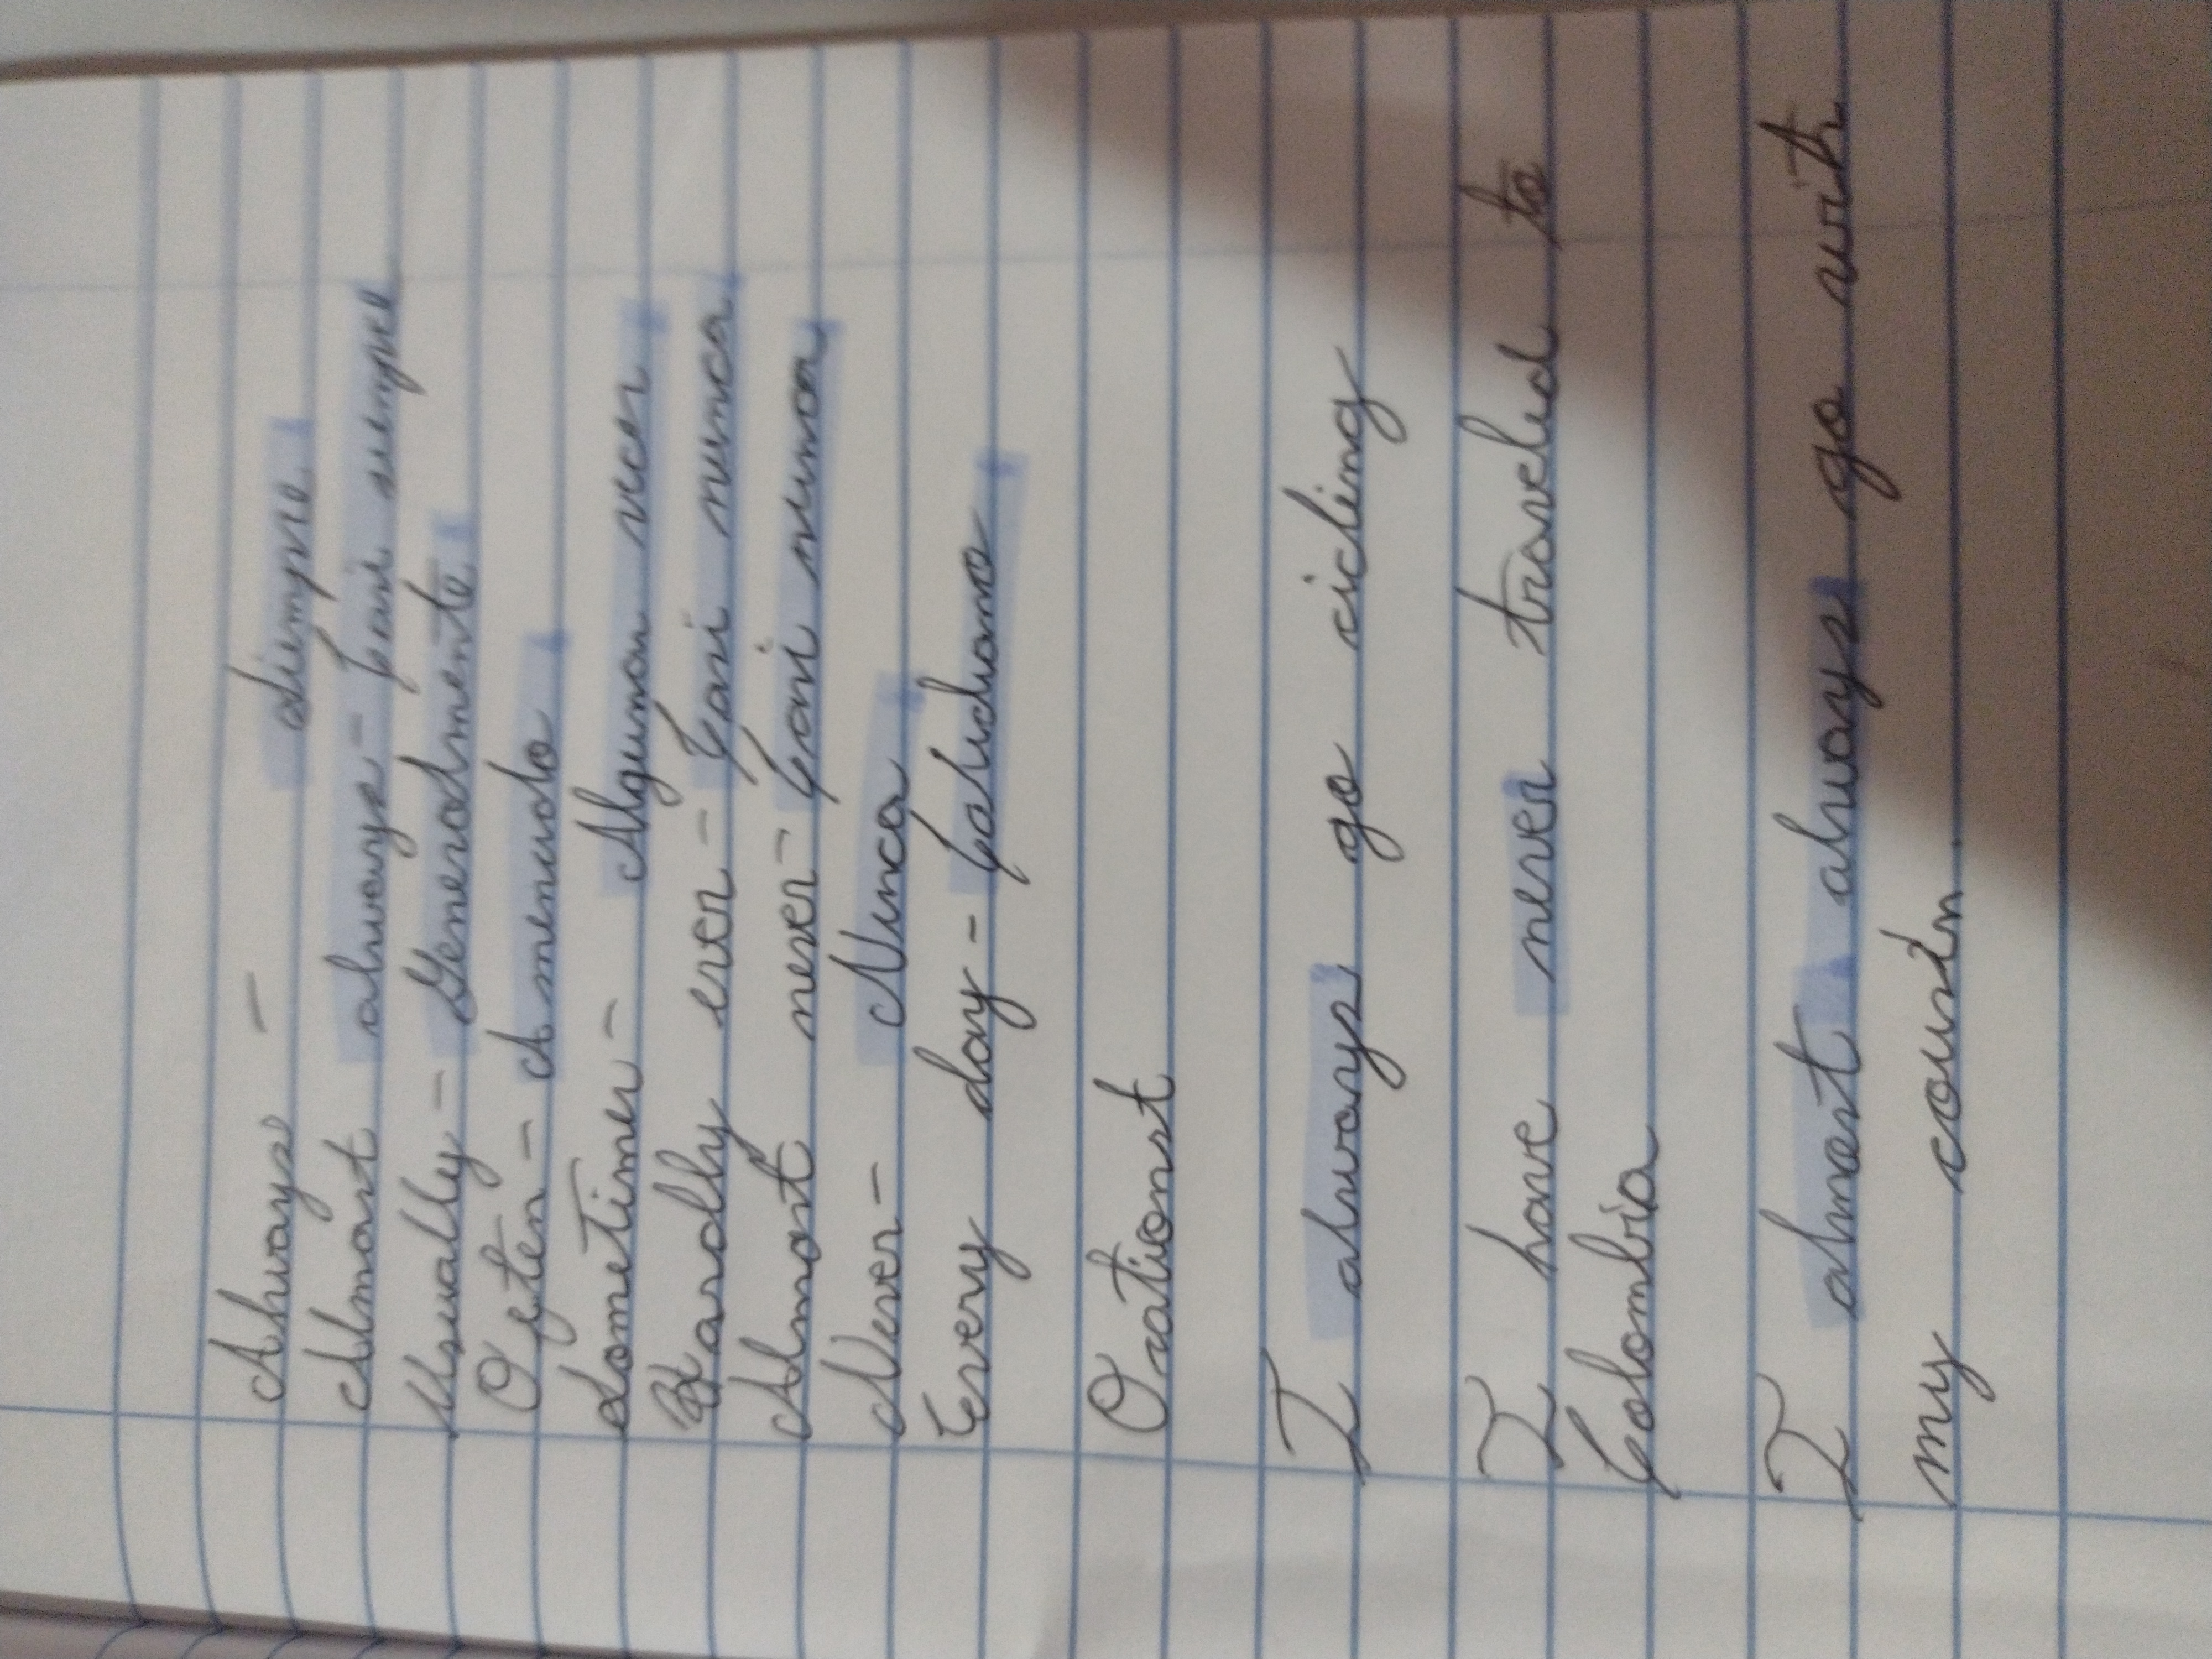 Always - siempre
Almost always - Casi siempre
Usually - Generalmente
Often - A menudo
Sometimes - Algunas veces
Hardly ever - Casi nunca
Almost never - Casi nunca
Never - Nunca
Every day - Cada
Orationst
I always go cicling
I have never traveled to
Colombia
I almost always go with
my cousin